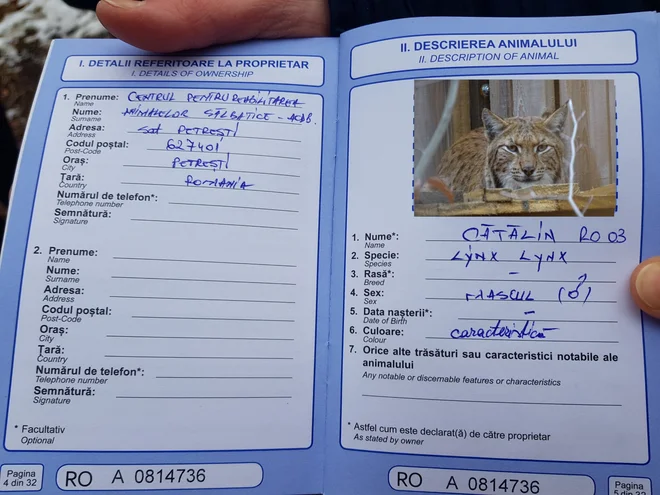 I. DETALII REFERITOARE LA PROPRIETAR
I. DETAILS OF OWNERSHIP
1. Prenume: CENTRUL PENTRU REABILITAREA
Name
Nume: ANIMALELOR SĂLBATICE - ACDB.
Surname
Adresa: sat PETREȘTI
Address
Codul poștal: 627401
Post-Code
Oraș: PETREȘTI
City
Țară: ROMANIA
Country
Numărul de telefon*:
Telephone number
Semnătură:
Signature
2. Prenume:
Name
Nume:
Surname
Adresa:
Address
Codul poștal:
Post-Code
Oraș:
City
Țară:
Country
Numărul de telefon*:
Telephone number
Semnătură:
Signature
* Facultativ
Optional
Pagina
4 din 32
RO A 0814736
II. DESCRIEREA ANIMALULUI
II. DESCRIPTION OF ANIMAL
1. Nume*: CĂTĂLIN RO 03
Name
2. Specie: LYNX LYNX
Species
3. Rasă*: -
Breed
4. Sex: MASCUL (♂)
Sex
5. Data nașterii*: -
Date of Birth
6. Culoare: caracteristică
Colour
7. Orice alte trăsături sau caracteristici notabile ale
animalului
Any notable or discernable features or characteristics
* Astfel cum este declarat(ă) de către proprietar
As stated by owner
RO A 0814736
Pagina
5 din 32